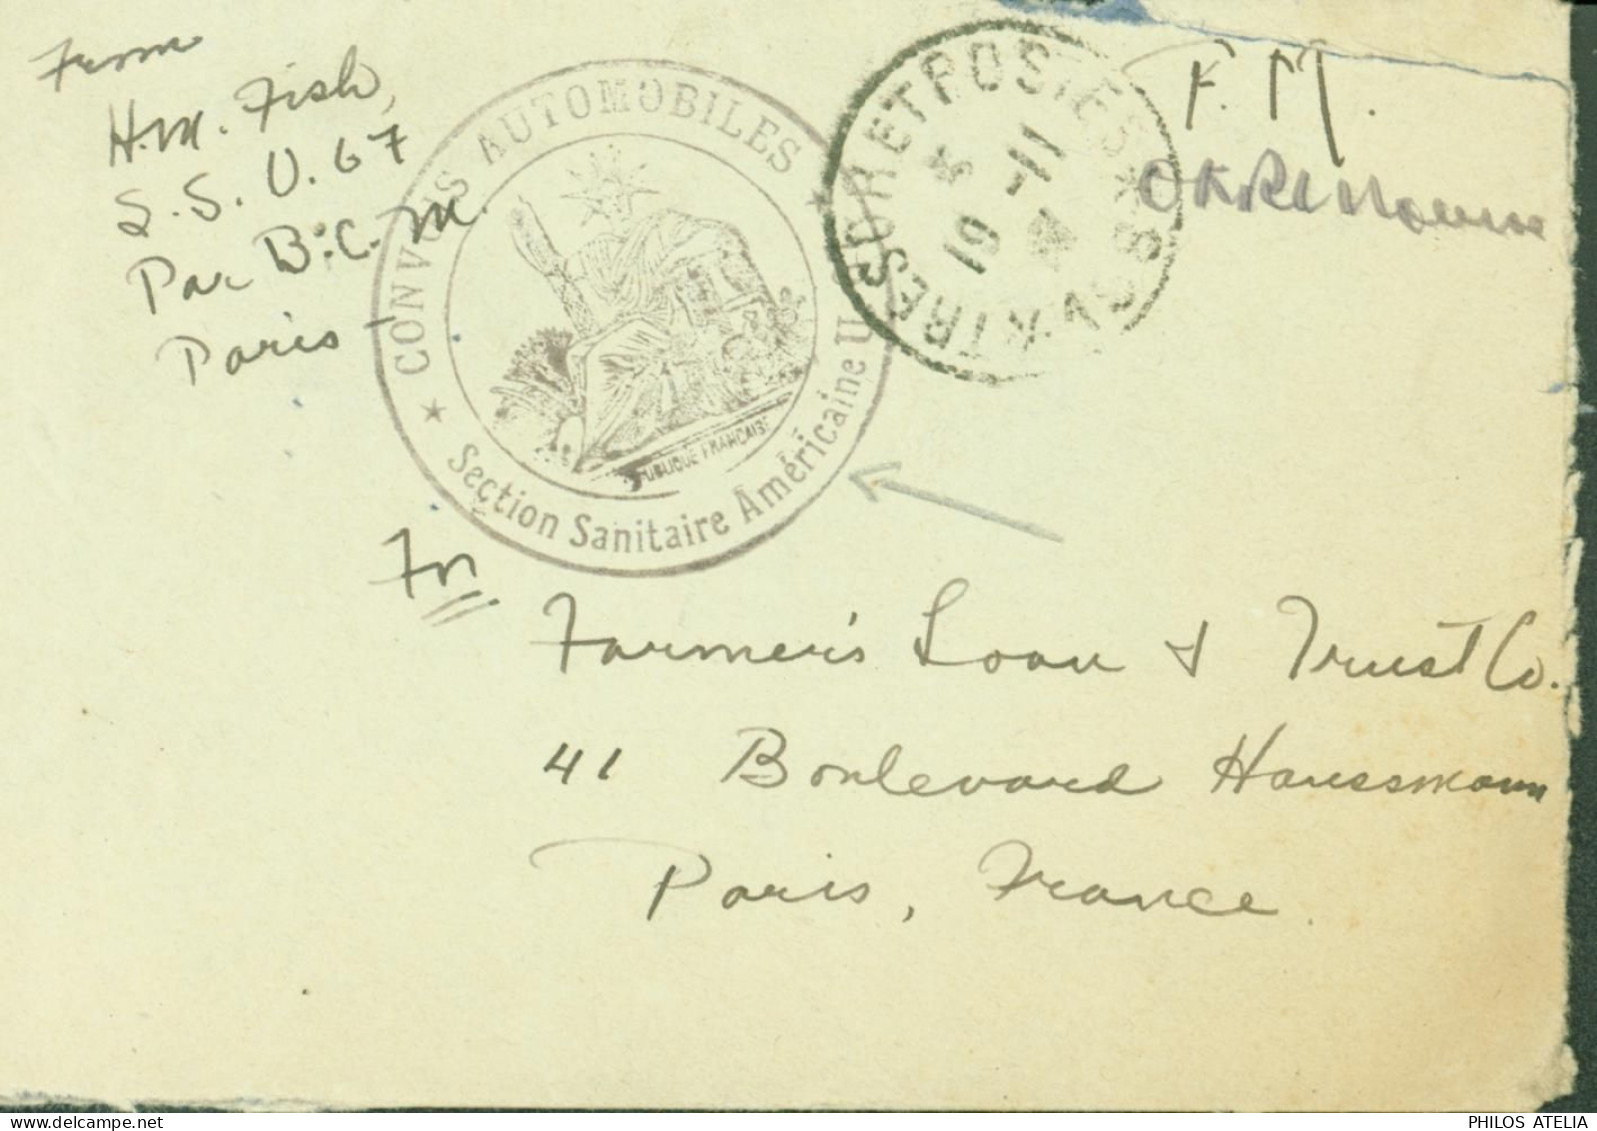 From
H.M. Fish,
S.S.U. 67
Par B.C.M.
Paris
CONVOIS AUTOMOBILES
Section Sanitaire Américaine U
PUBLIQUE FRANÇAISE
TRESOR ET POSTES
* 19 -11
F.M.
For
Farmer's Loan & Trust Co.
41 Boulevard Haussmann
Paris, France.
PHILOS ATELIA